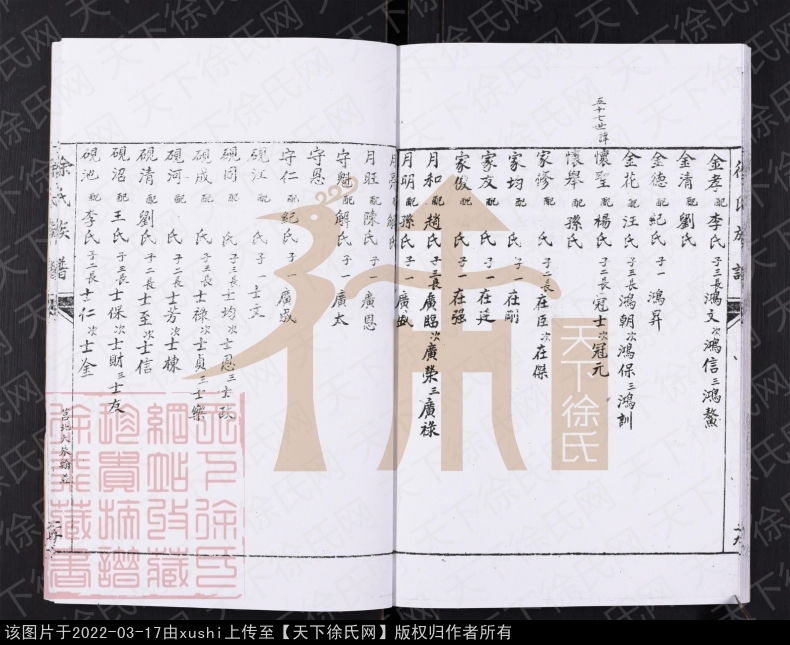 徐氏族譜
金孝 配 李氏 子三 長 鴻文 次 鴻信 三 鴻鰲
金清 配 劉氏
金德 配 紀氏 子一 鴻昇
金花 配 汪氏 子三 長 鴻朝 次 鴻保 三 鴻訓
五十七世譜
懷聖 配 楊氏 子二 長 冠士 次 冠元
懷舉 配 孫氏
家修 配 氏 子二 長 在臣 次 在傑
家均 配 氏 子一 在剛
家友 配 氏 子一 在廷
家俊 配 氏 子一 在强
月和 配 趙氏 子三 長 廣昭 次 廣榮 三 廣祿
月明 配 孫氏 子一 廣盛
月亮 配 解氏
月旺 配 陳氏 子一 廣恩
守魁 配 解氏 子一 廣太
守恩
守仁 配 紀氏 子一 廣盛
硯江 配 氏 子一 士文
硯田 配 氏 子三 長 士均 次 士恩 三 士政
硯成 配 氏 子三 長 士祿 次 士貞 三 士樂
硯河 配 氏 子二 長 士芳 次 士棟
硯清 配 劉氏 子二 長 士至 次 士信
硯沼 配 王氏 子三 長 士保 次 士財 三 士友
硯池 配 李氏 子二 長 士仁 次 士金
徐氏族譜
天下徐氏
天下徐氏網
珍貴
徐
藏書
该图片于2022-03-17由xushi上传至【天下徐氏网】版权归作者所有